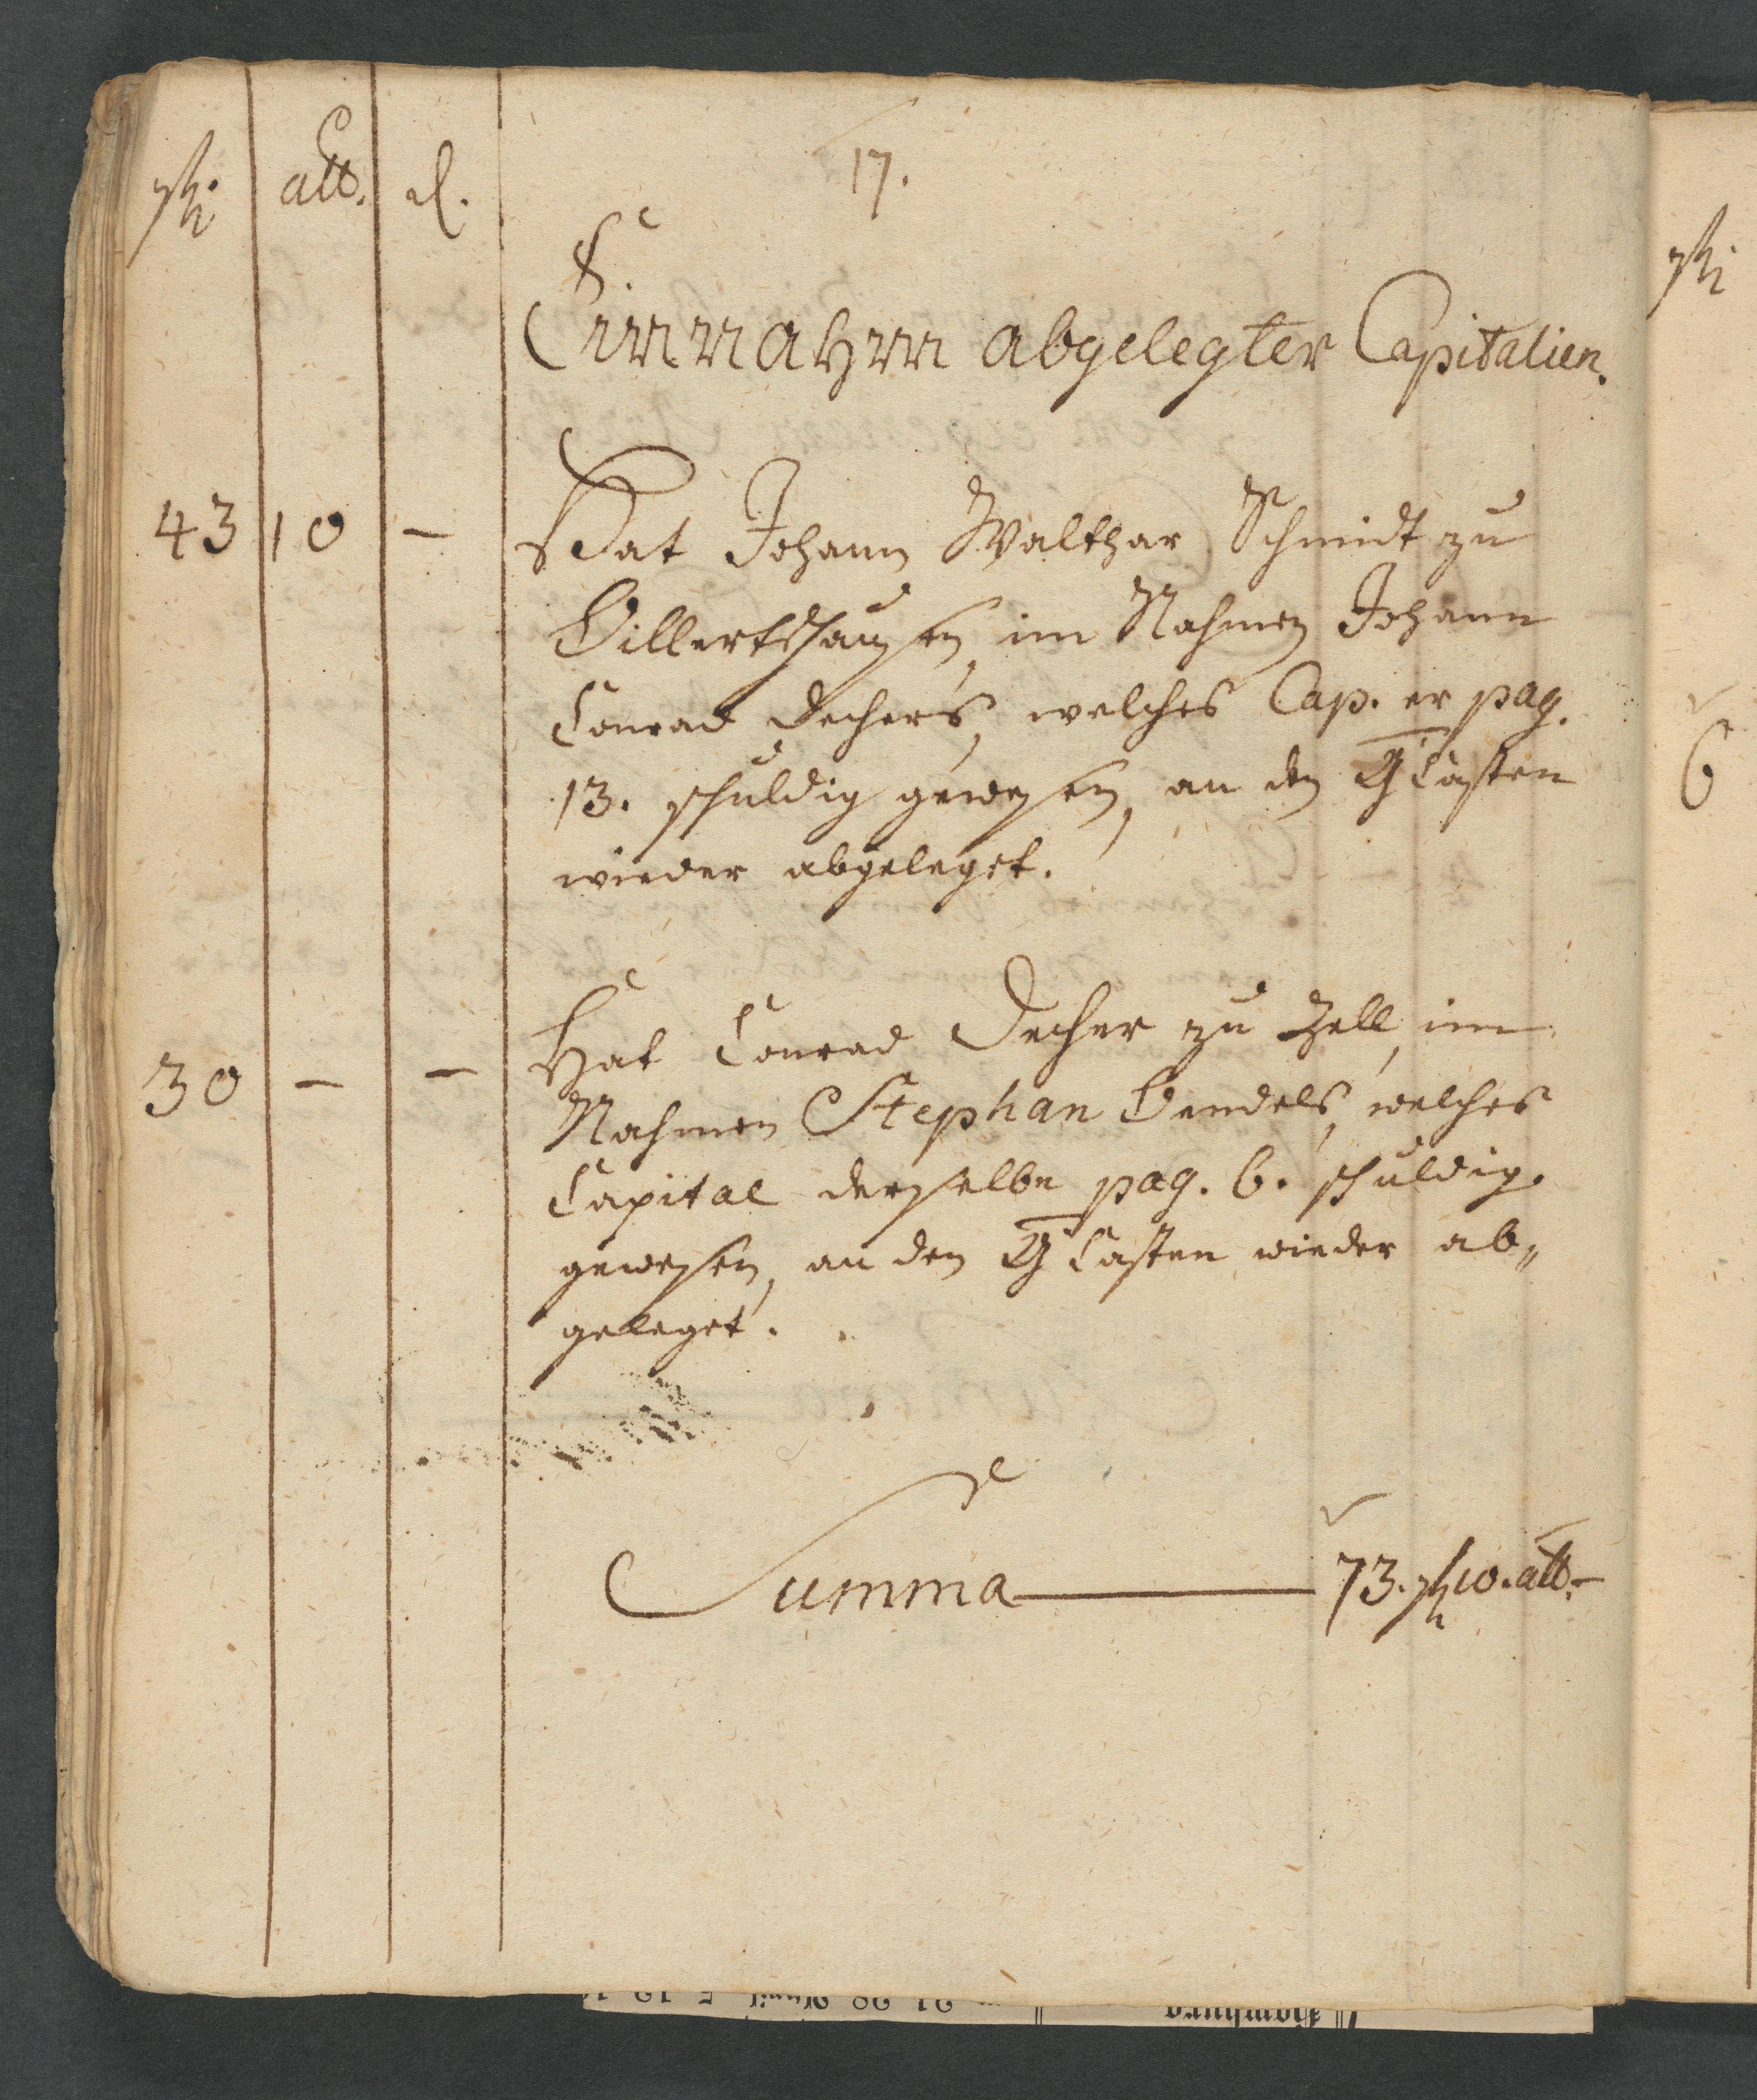 rth. alb. d.
17.
Einnahm abgelegter Capitalien.
43 10 — Hat Johann Walthar Schmidt zu
Billertshausen, im Nahmen Johann
Conrad Dechers, welches Cap. er pag.
13. schuldig gewesen, an den G Casten
wieder abgeleget.
30 — — Hat Conrad Decher zu Zell, im
Nahmen Stephan Bendels, welches
Capital derselbe pag. 6. schuldig
gewesen, an den G Casten wieder ab„
geleget.
Summa — 73. rth 10. alb. —
rth
6
Hamburg